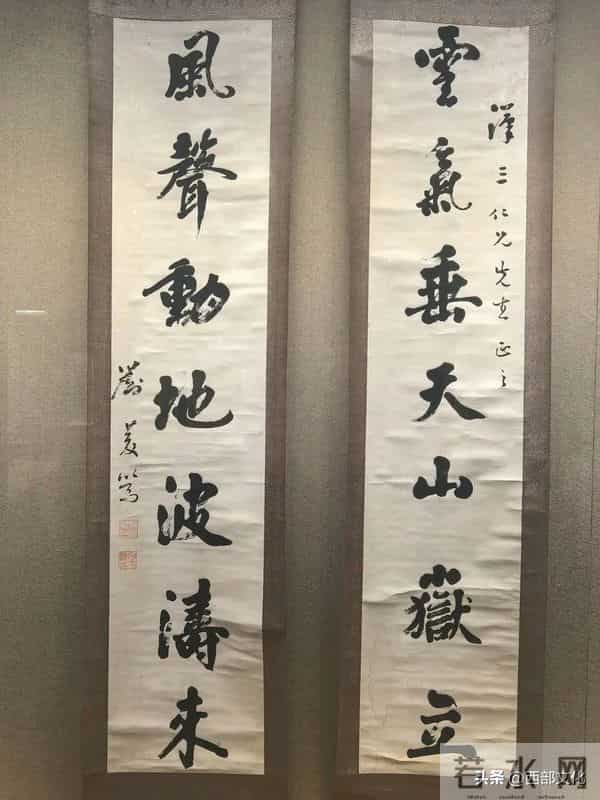 雲氣垂天山嶽立
三仁兄先生正之
風聲動地波濤來
劉
若水网
头条 @西部文化